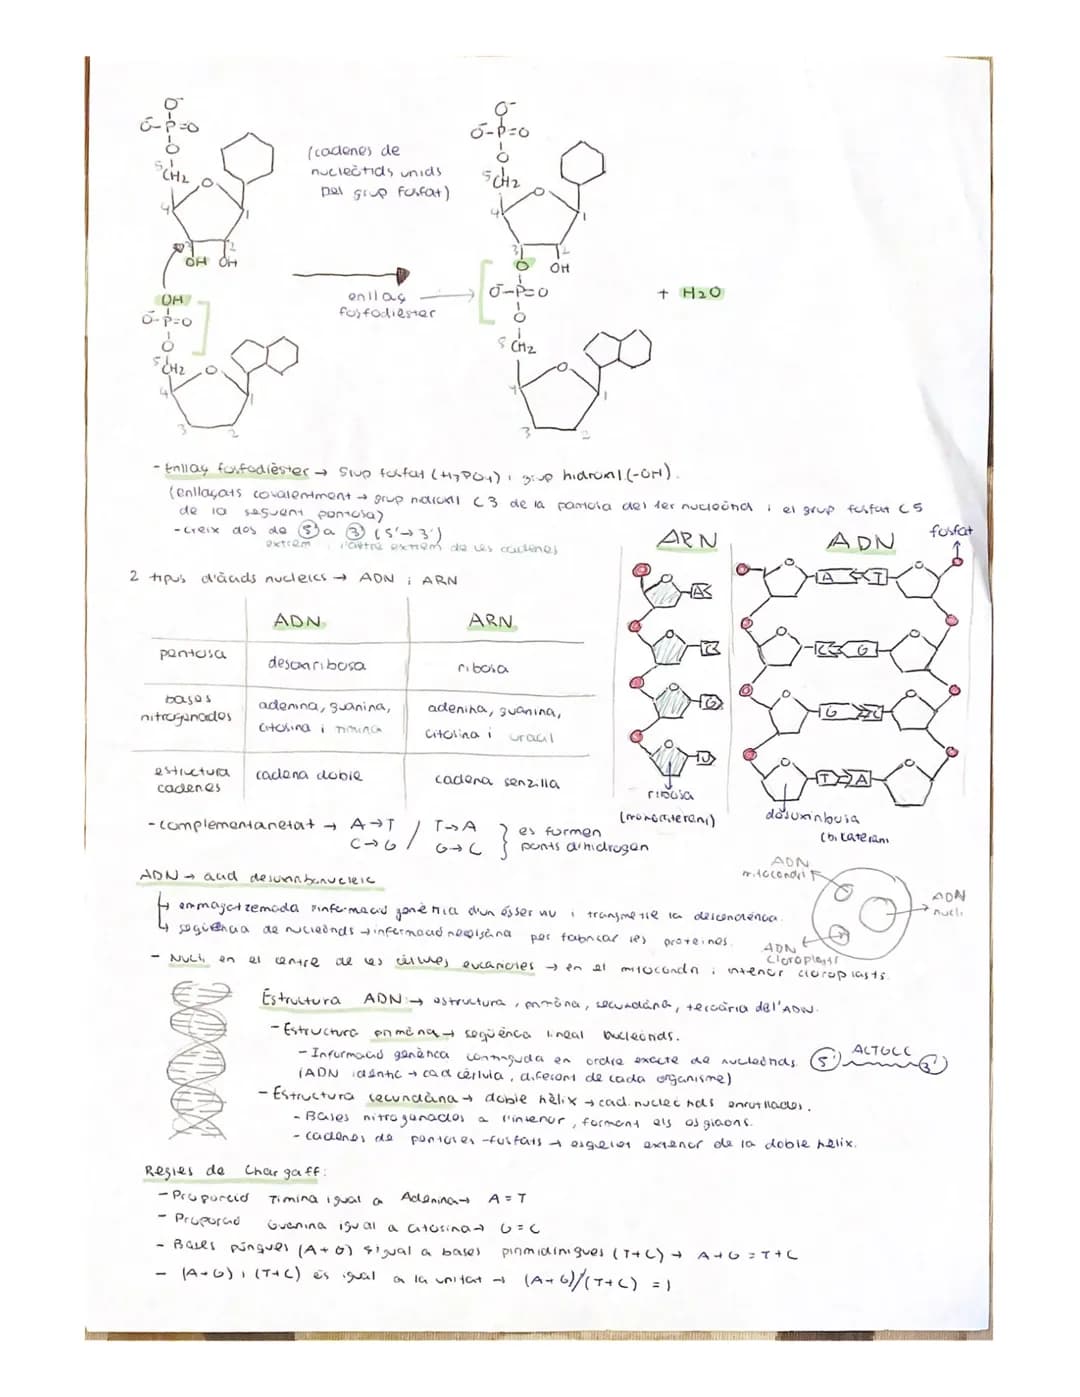 O⁻
O⁻-P=O
O
5 CH2
O
4
1
3
2
OH OH
OH
O⁻-P=O
O
5 CH2
O
4
1
3
2
(cadenes de
nucleòtids units
pel grup fosfat)
enllaç
fosfodièster
O⁻
O⁻-P=O
O
5 CH2
O
4
1
3
2
O
OH
O⁻-P=O
O
5 CH2
O
4
1
3
2
+ H2O
- Enllaç fosfodièster → Grup fosfat (H3PO4) i grup hidroxil (-OH).
(enllaçats covalentment → grup hidroxil C3 de la pentosa del 1er nucleòtid i el grup fosfat C5
de la següent pentosa)
- creix des de 5' a 3' (5'→3')
extrem l'altre extrem de les cadenes
2 tipus d'àcids nucleics → ADN i ARN
ADN ARN
pentosa desoxiribosa ribosa
bases nitrogenades
adenina, guanina, citosina i timina
adenina, guanina, citosina i uracil
estructura cadenes
cadena doble cadena senzilla
ARN
A
C
G
U
ribosa
ADN
fosfat
A T
C G
G C
T A
desoxiribosa
- complementarietat → A→T / T→A
C→G / G→C
es formen
ponts d'hidrogen
ADN → àcid desoxiribonucleic
→ emmagatzemada informació genètica d'un ésser viu i transmetre la descendència.
→ seqüència de nucleòtids → informació necessària per fabricar les proteïnes.
- Nucli, en el centre de les cèl·lules eucariotes → en el mitocondri i interior cloroplasts.
ADN
mitocondri
ADN
nucli
ADN
cloroplasts
Estructura ADN → estructura, primària, secundària, terciària de l'ADN.
- Estructura primària → seqüència lineal nucleòtids.
- Informació genètica continguda en ordre exacte de nucleòtids.
(ADN idèntic → cad cèl·lula, diferent de cada organisme)
5' ACTGCC 3'
- Estructura secundària → doble hèlix → cad. nucleòtids enrotllades.
- Bases nitrogenades a l'interior, formant els esglaons.
- cadenes de pentoses-fosfats → esquelet exterior de la doble hèlix.
Regles de Chargaff:
- Proporció Timina igual a Adenina → A = T
- Proporció Guanina igual a citosina → G = C
- Bases púriques (A+G) igual a bases pirimidíniques (T+C) → A+G = T+C
- (A+G) i (T+C) és igual a la unitat → (A+G)/(T+C) = 1